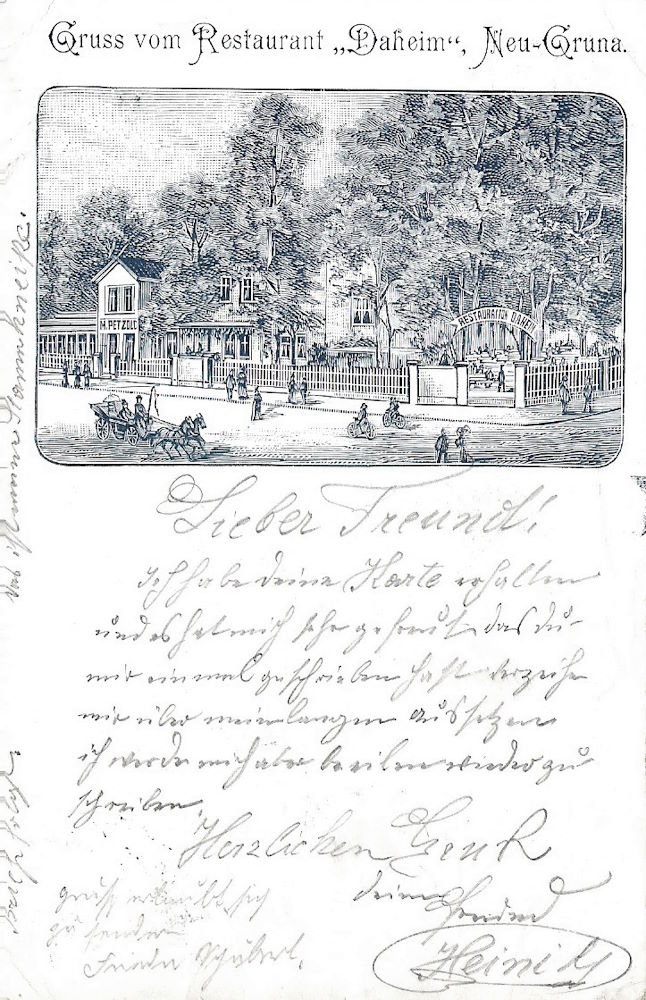 Gruss vom Restaurant „Daheim“, Neu-Gruna.
M. PETZOLD
RESTAURATION DAHEIM
Lieber Freund!
Ich habe deine Karte erhalten
und es hat mich sehr gefreut das du
mir einmal geschrieben hast verzeihe
mir über mein langen aussetzen
ich werde mich aber beeilen wieder zu
schreiben.
Herzlichen Gruß
deine
Heinich
Gruß erlaubt sich
zu senden
Frieda Schubert.